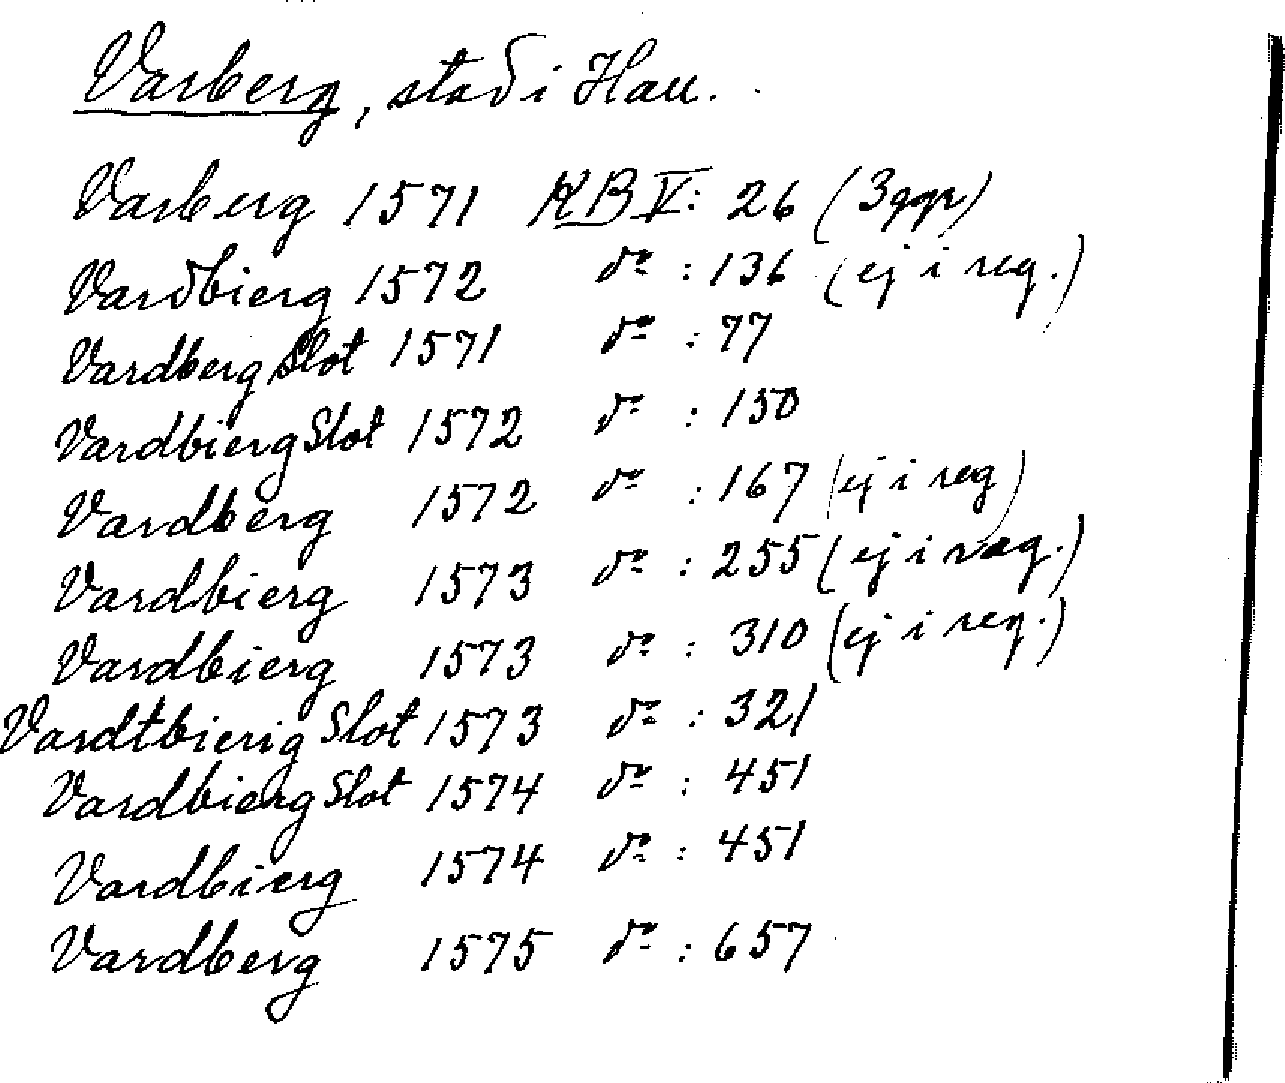 Varberg, stad i Hall.
Varberg 1571 KB V: 26 (3 ggr)
Vardbierg 1572 do : 136 (ej i reg.)
Vardberg Slot 1571 do : 77
Vardbierg Slot 1572 do : 150
Vardberg 1572 do : 167 (ej i reg)
Vardbierg 1573 do : 255 (ej i reg.)
Vardbierg 1573 do : 310 (ej i reg.)
Vardtbierig Slot 1573 do : 321
Vardbierg Slot 1574 do : 451
Vardbierg 1574 do : 451
Vardberg 1575 do : 657